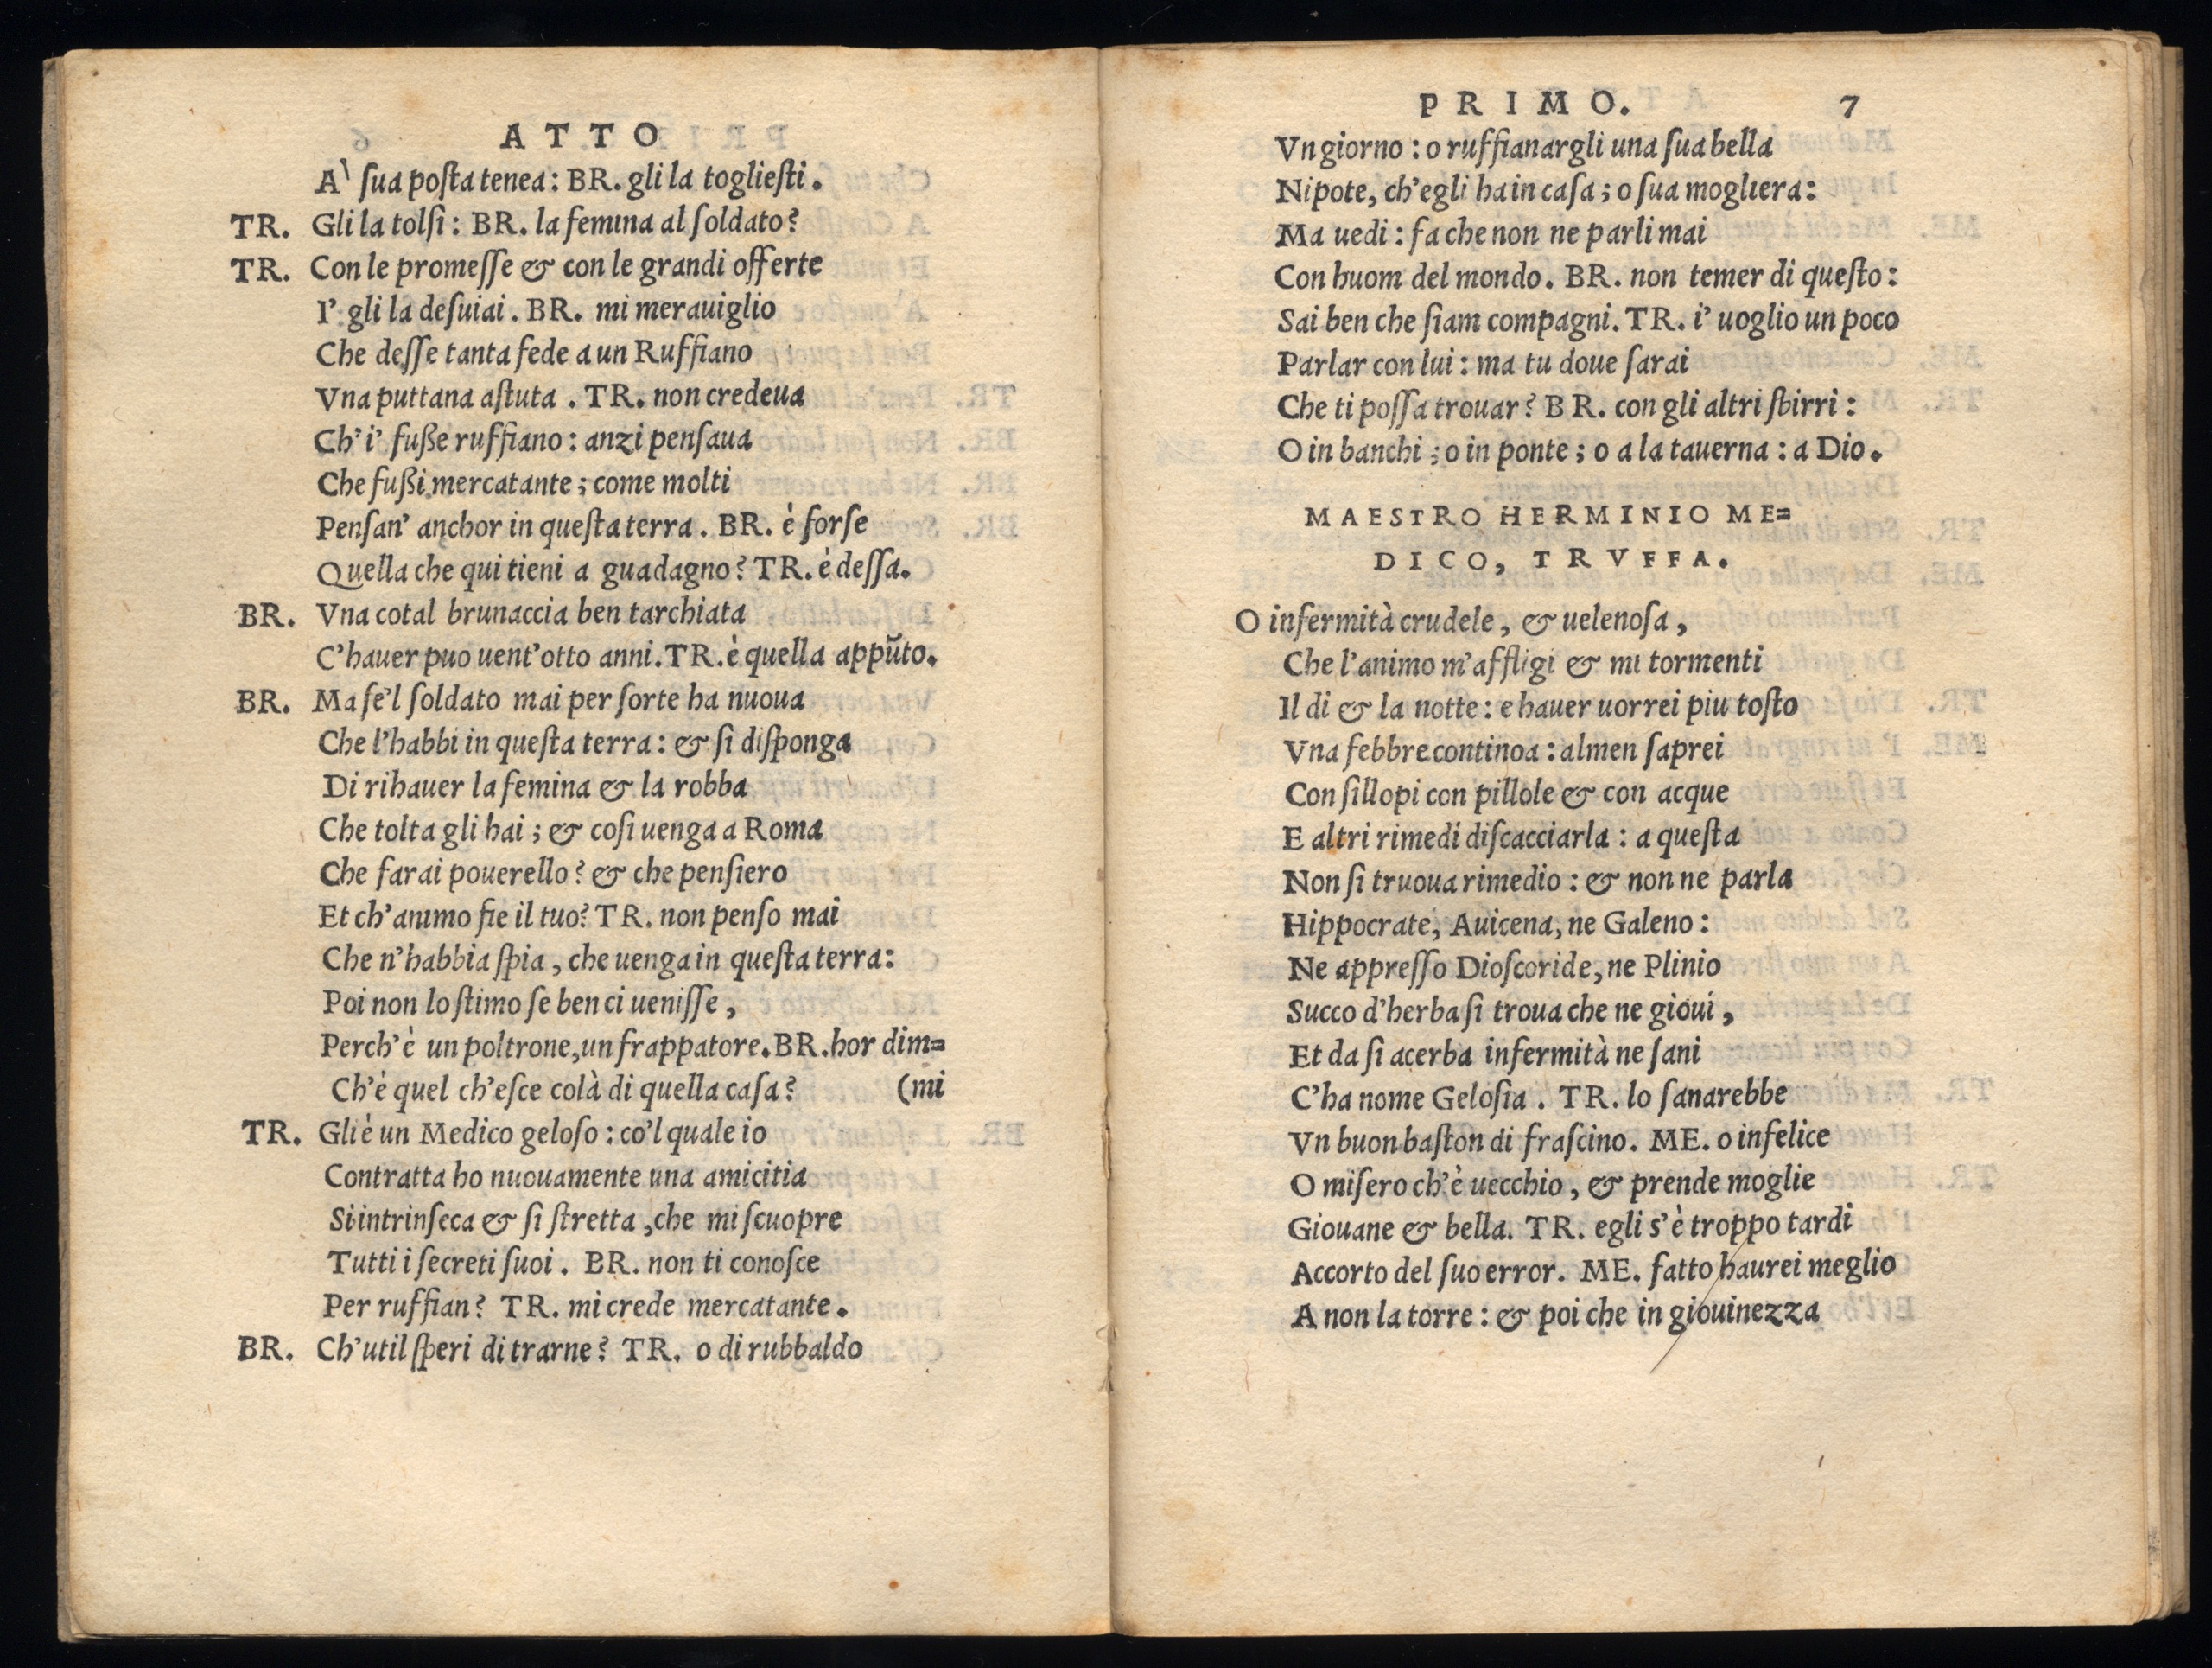 ATTO
A' ſua poſta tenea: BR. gli la toglieſti.
TR. Gli la tolſi: BR. la femina al ſoldato?
TR. Con le promeſſe & con le grandi offerte
I' gli la deſuiai. BR. mi merauiglio
Che deſſe tanta fede a un Ruffiano
Vna puttana aſtuta. TR. non credeua
Ch'i' fuße ruffiano: anzi penſaua
Che fußi mercatante; come molti
Penſan' anchor in queſta terra. BR. è forſe
Quella che qui tieni a guadagno? TR. è deſſa.
BR. Vna cotal brunaccia ben tarchiata
C'hauer puo uent'otto anni. TR. è quella appũto.
BR. Ma ſe'l ſoldato mai per ſorte ha nuoua
Che l'habbi in queſta terra: & ſi diſponga
Di rihauer la femina & la robba
Che tolta gli hai; & coſi uenga a Roma
Che farai pouerello? & che penſiero
Et ch'animo fie il tuo? TR. non penſo mai
Che n'habbia ſpia, che uenga in queſta terra:
Poi non lo ſtimo ſe ben ci ueniſſe,
Perch'è un poltrone, un frappatore. BR. hor dim=
Ch'è quel ch'eſce colà di quella caſa? (mi
TR. Gli è un Medico geloſo: co'l quale io
Contratta ho nuouamente una amicitia
Si intrinſeca & ſi ſtretta, che mi ſcuopre
Tutti i ſecreti ſuoi. BR. non ti conoſce
Per ruffian? TR. mi crede mercatante.
BR. Ch'util ſperi di trarne? TR. o di rubbaldo
PRIMO. 7
Vn giorno: o ruffianargli una ſua bella
Nipote, ch'egli ha in caſa; o ſua mogliera:
Ma uedi: fa che non ne parli mai
Con huom del mondo. BR. non temer di queſto:
Sai ben che ſiam compagni. TR. i' uoglio un poco
Parlar con lui: ma tu doue ſarai
Che ti poſſa trouar? BR. con gli altri ſbirri:
O in banchi; o in ponte; o a la tauerna: a Dio.
MAESTRO HERMINIO ME=
DICO, TRVFFA.
O infermità crudele, & uelenoſa,
Che l'animo m'affligi & mi tormenti
Il di & la notte: e hauer uorrei piu toſto
Vna febbre continoa: almen ſaprei
Con ſillopi con pillole & con acque
E altri rimedi diſcacciarla: a queſta
Non ſi truoua rimedio: & non ne parla
Hippocrate, Auicena, ne Galeno:
Ne appreſſo Dioſcoride, ne Plinio
Succo d'herba ſi troua che ne gioui,
Et da ſi acerba infermità ne ſani
C'ha nome Geloſia. TR. lo ſanarebbe
Vn buon baſton di fraſcino. ME. o infelice
O miſero ch'è uecchio, & prende moglie
Giouane & bella. TR. egli s'è troppo tardi
Accorto del ſuo error. ME. fatto haurei meglio
A non la torre: & poi che in giouinezza